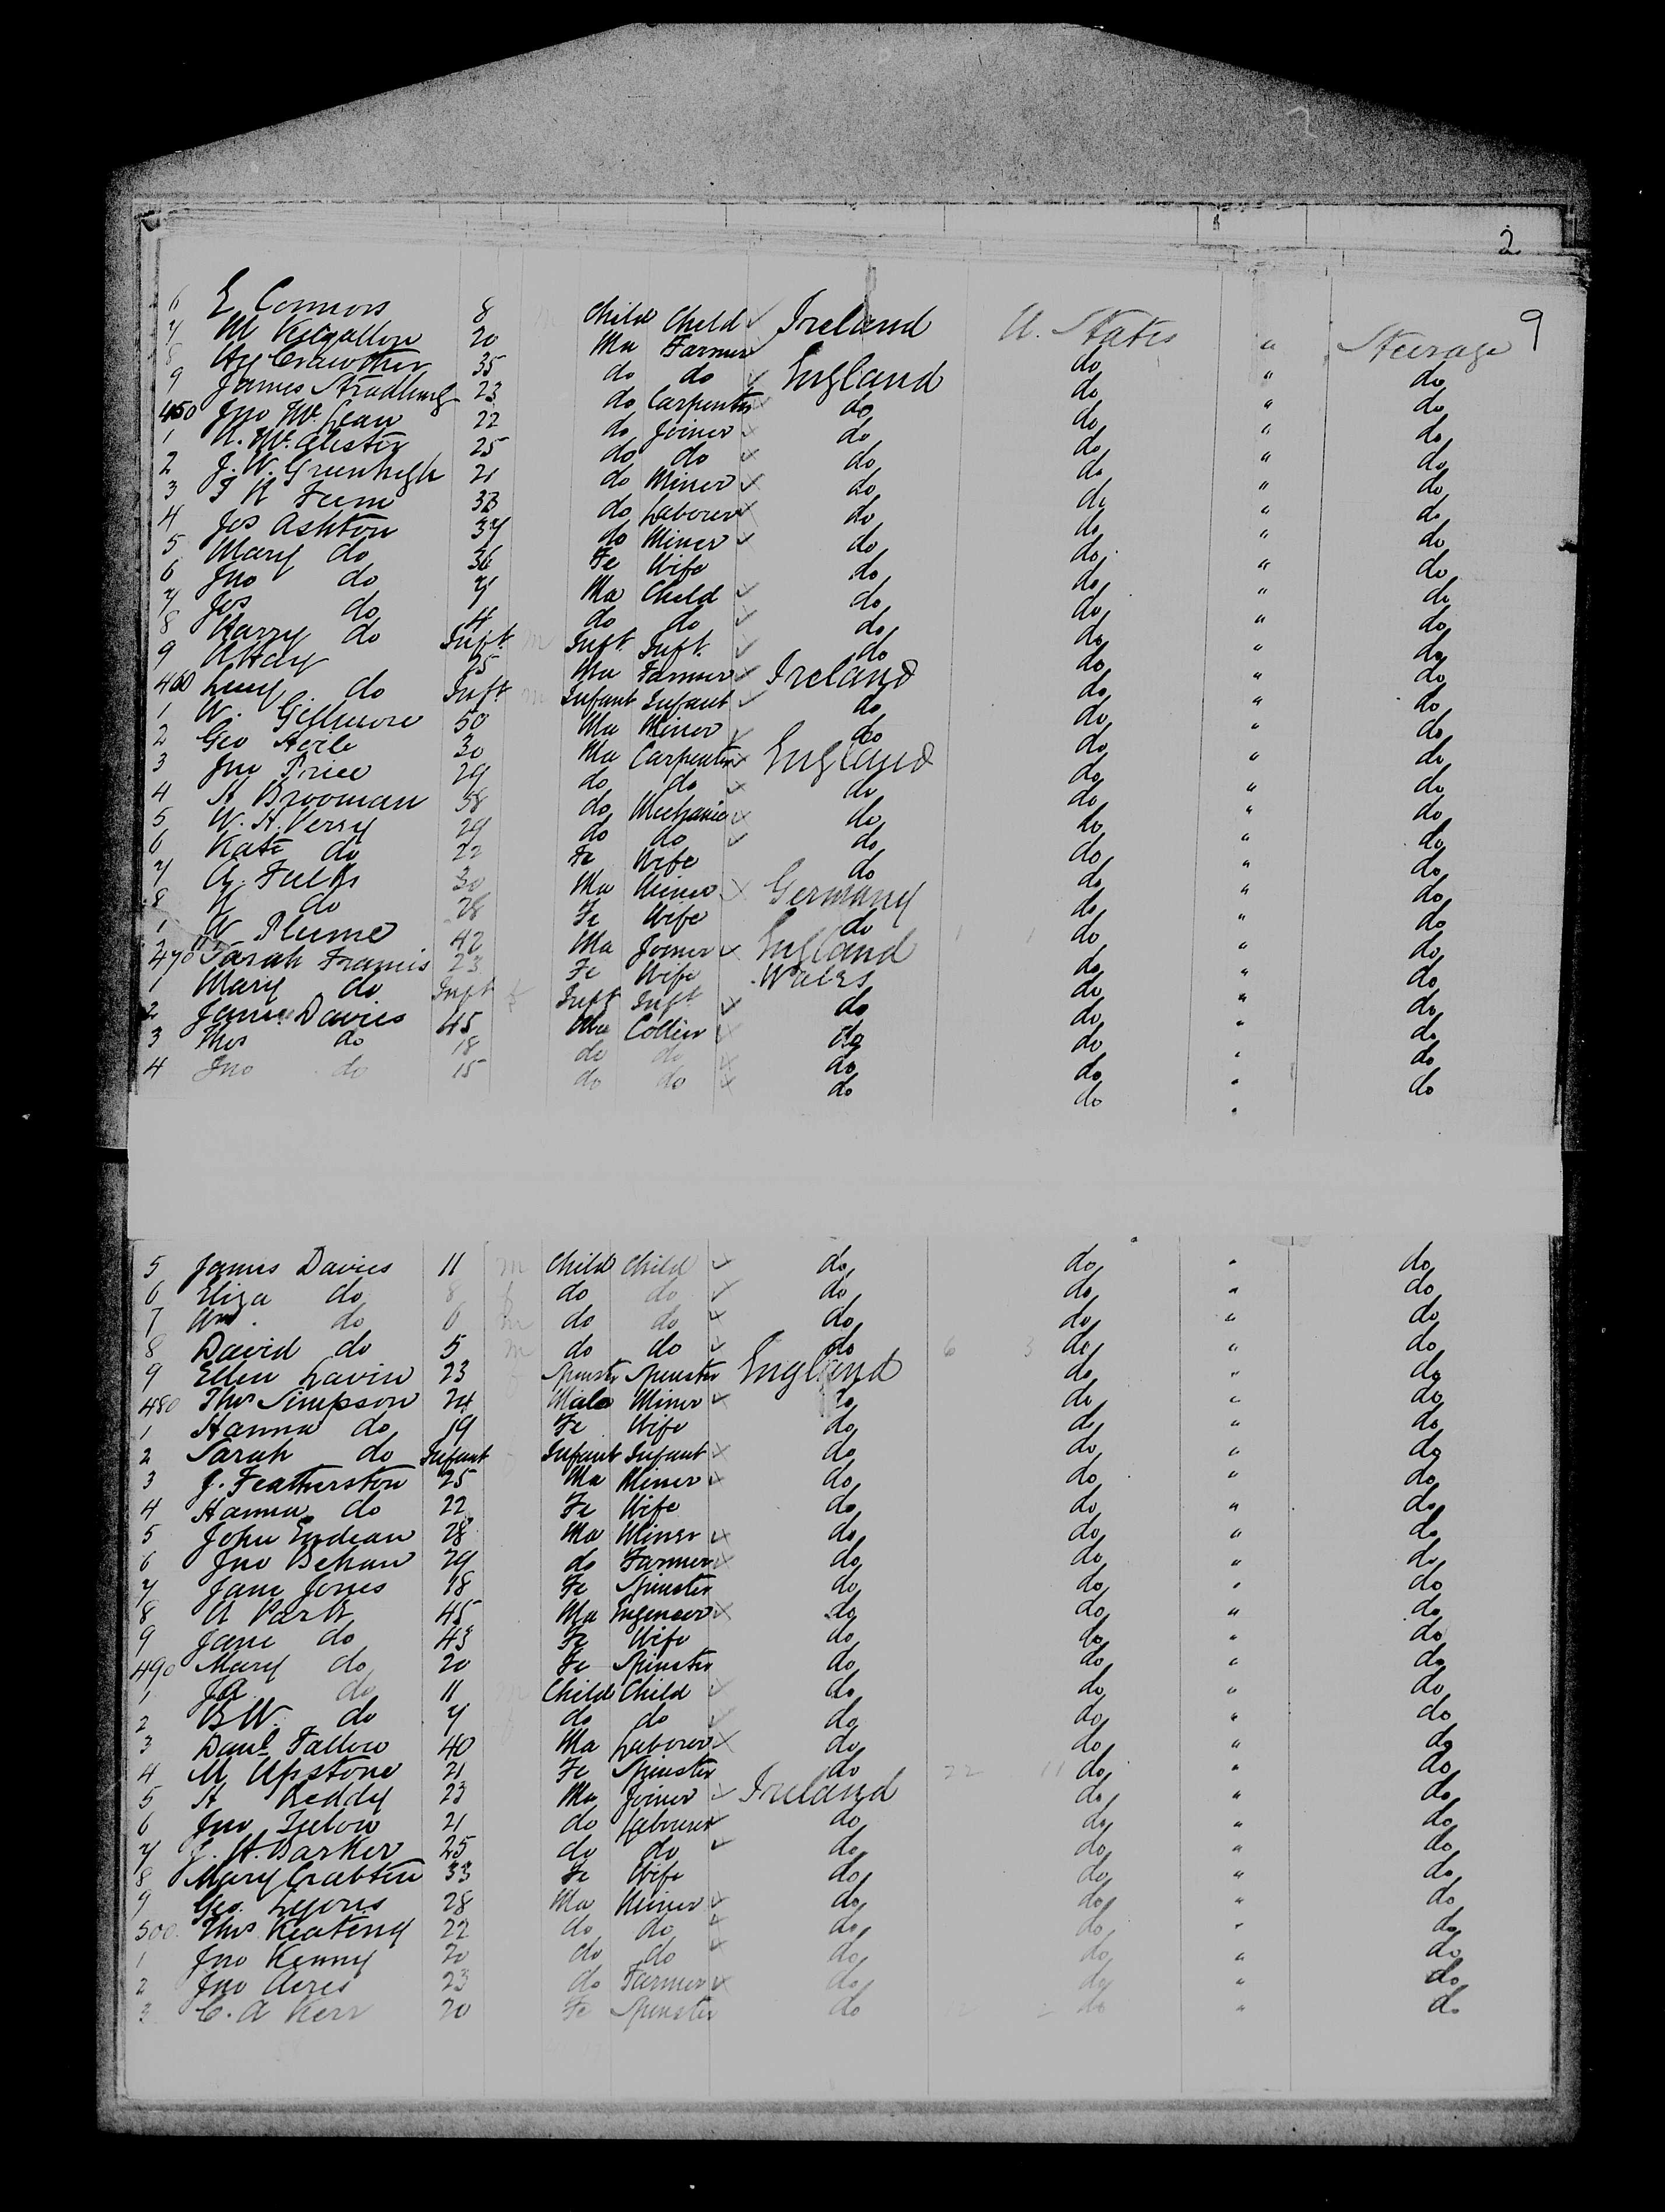 2
9
6 E Connors 8 m Child Child Ireland U. States " Steerage
7 M Kilgallon 20 Ma Farmer do " do
8 Hy Crawther 35 do do England do " do
9 James Stradling 23 do Carpenter do do " do
450 Jno McLean 22 do Joiner do do " do
1 A. McAlister 25 do do do do " do
2 J. W. Greenhigh 21 do Miner do do " do
3 33 do Laborer do do " do
4 Jos Ashton 37 do Miner do do " do
5 Mary do 36 Fe Wife do do " do
6 Jno do 7 Ma Child do do " do
7 Jos do 4 do do do do " do
8 Harry do Inft m Inft. Inft. do do " do
9 A Hay 25 Ma Farmer Ireland do " do
460 Lucy do Inft m Infant Infant do do " do
1 W. Gillmore 50 Ma Miner do do " do
2 Geo 30 Ma Carpenter England do " do
3 Jno Price 29 do do do do " do
4 H Brooman 38 do Mechanic do do " do
5 W. H. Verry 29 do do do do " do
6 Kate do 22 Fe Wife do do " do
7 30 Ma Miner Germany do " do
8 do 28 Fe Wife do do " do
W Plume 42 Ma Joiner England do " do
470 Sarah Francis 23 Fe Wife Wales do " do
1 Mary do Inft f Inft Inft do do " do
2 James Davies 45 Ma Collier do do " do
3 Thos do 18 do do do do " do
4 Jno do 15 do do do do " do
5 James Davies 11 m Child Child do do " do
6 Eliza do 8 f do do do do " do
7 Wm. do 6 m do do do do " do
8 David do 5 m do do do 6 3 do " do
9 Ellen Lavin 23 Spinster Spinster England do " do
480 Thos Simpson 24 Male Miner do do " do
1 Hanna do 19 Fe Wife do do " do
2 Sarah do Infant Infant Infant do do " do
3 J. Featherston 25 Ma Miner do do " do
4 Hanna do 22 Fe Wife do do " do
5 John Endean 28 Ma Miner do do " do
6 Jno Behan 29 do Farmer do do " do
7 Jane Jones 18 Fe Spinster do do " do
8 A Park 45 Ma Engineer do do " do
9 Jane do 43 Fe Wife do do " do
490 Mary do 20 Fe Spinster do do " do
1 Ja do 11 m Child Child do do " do
2 B W. do 7 do do do do " do
3 Danl Fallow 40 Ma Laborer do do " do
4 M Upstone 21 Fe Spinster do 22 11 do " do
5 H Reddy 23 Ma Joiner Ireland do " do
6 Jno 21 do Labourer do do " do
7 H. Barker 25 do do do do " do
8 Mary Crabtree 33 Fe Wife do do " do
9 Geo. Lyons 28 Ma Miner do do " do
500 Thos Keating 22 do do do do " do
1 Jno Kenny 20 do do do do " do
2 Jno Acres 23 do Farmer do do " do
3 C. A Kerr 20 Fe Spinster do do " do